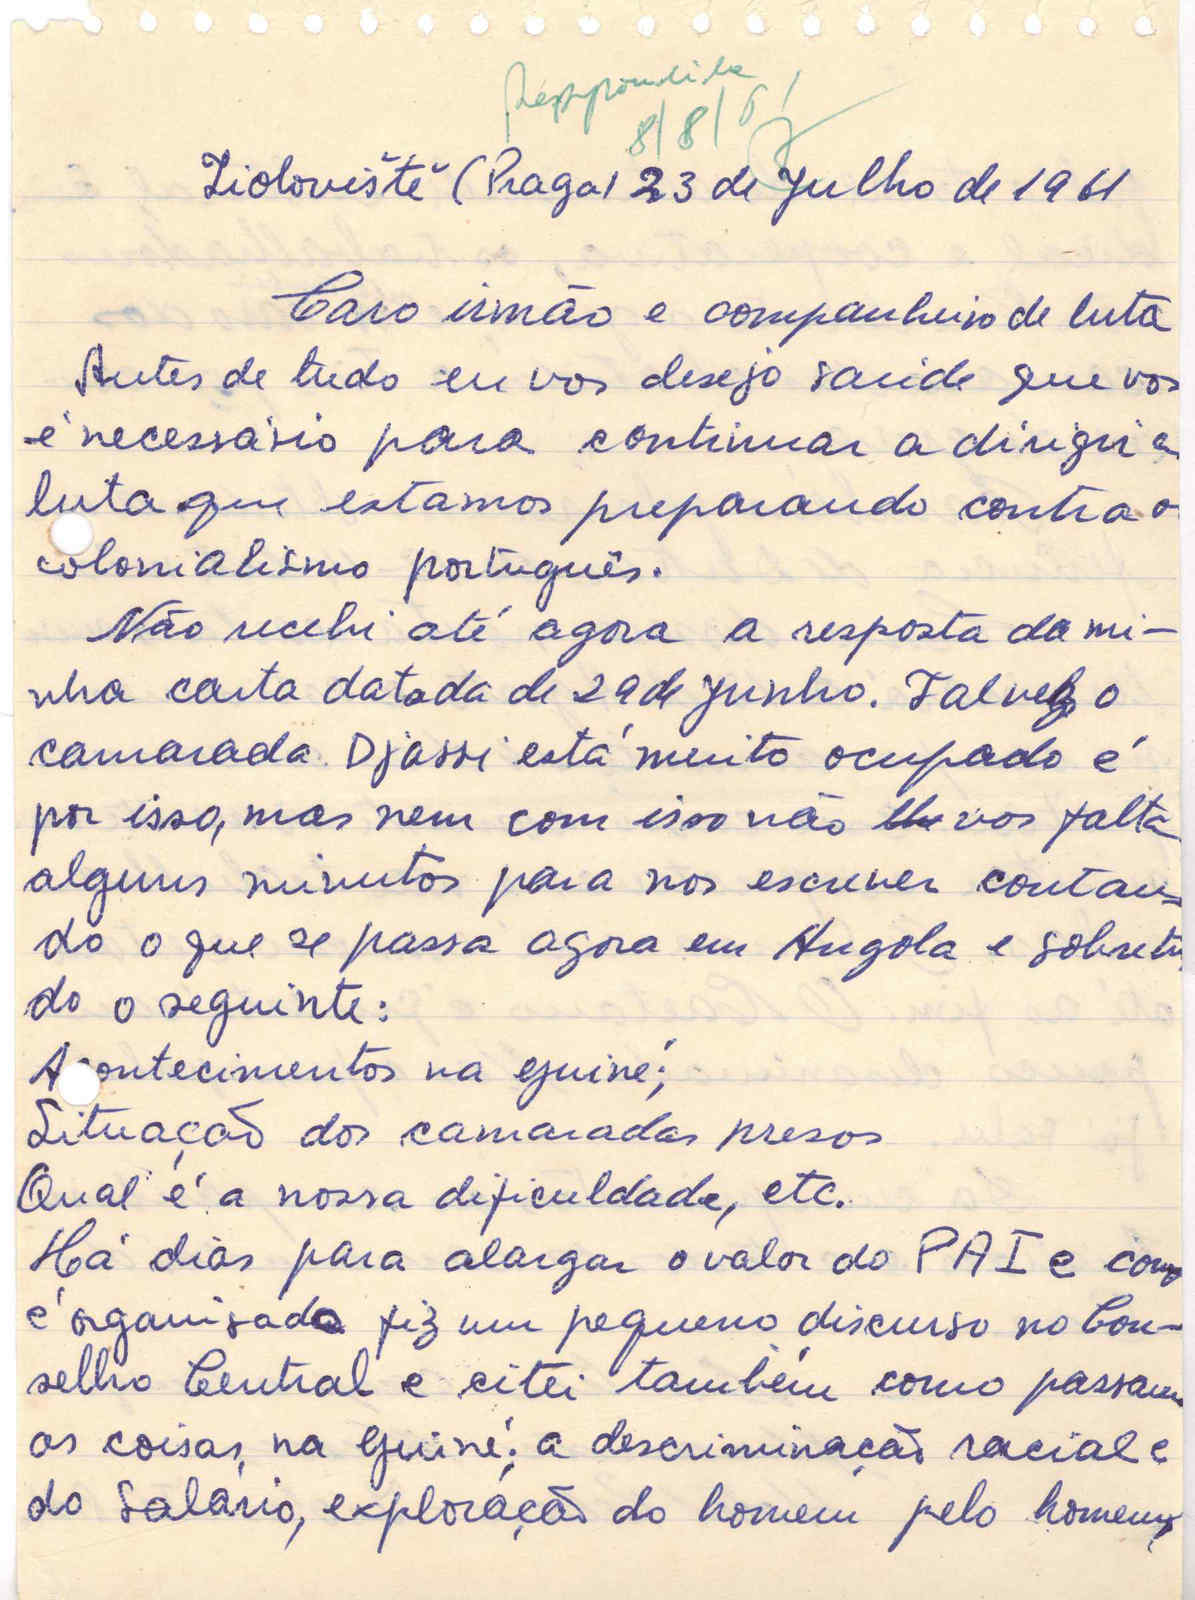 Respondida
8/8/61
Zidoviště (Praga) 23 de Julho de 1961
Caro irmão e companheiro de luta
Antes de tudo eu vos desejo saúde que vos
é necessário para continuar a dirigir a
luta que estamos preparando contra o
colonialismo português.
Não recebi até agora a resposta da mi-
nha carta datada de 29 de junho. Talvez o
camarada Djassi está muito ocupado é
por isso, mas nem com isso não lhe vos falta
alguns minutos para nos escrever contan-
do o que se passa agora em Angola e sobretu
do o seguinte:
Acontecimentos na Guiné;
Situação dos camaradas presos
Qual é a nossa dificuldade, etc.
Há dias para alargar o valor do PAI e como
é organisado fiz um pequeno discurso no Con-
selho Central e citei também como passam
as coisas, na Guiné; a descriminação racial e
do Salário, exploração do homem pelo homem,